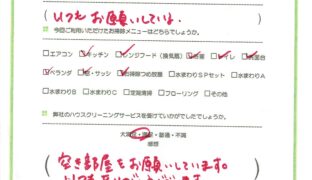 いつもお願いしています。
今回ご利用いただけたお掃除メニューはどちらでしょうか。
□エアコン □キッチン □レンジフード(換気扇) □浴室 □トイレ □洗面台
□ベランダ □窓・サッシ □お掃除つめ放題 □水まわりSPセット □水まわりA
□水まわりB □水まわりC □定期清掃 □フローリング □その他
弊社のハウスクリーニングサービスを受けていかがでしたでしょうか。
大満足・満足・普通・不満
感想
空き部屋をお願いしています。